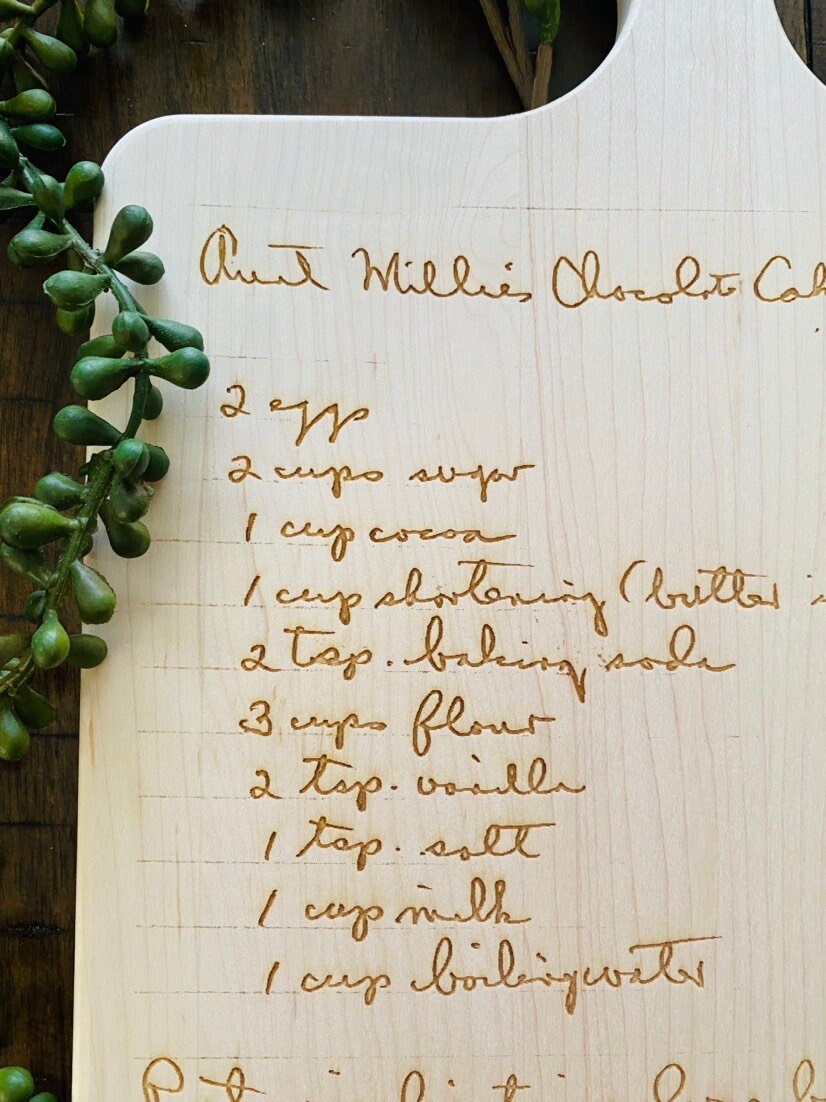 Aunt Millies Chocolate Cak
2 eggs
2 cups sugar
1 cup cocoa
1 cup shortening (butter
2 tsp. baking soda
3 cups flour
2 tsp. vanilla
1 tsp. salt
1 cup milk
1 cup boiling water